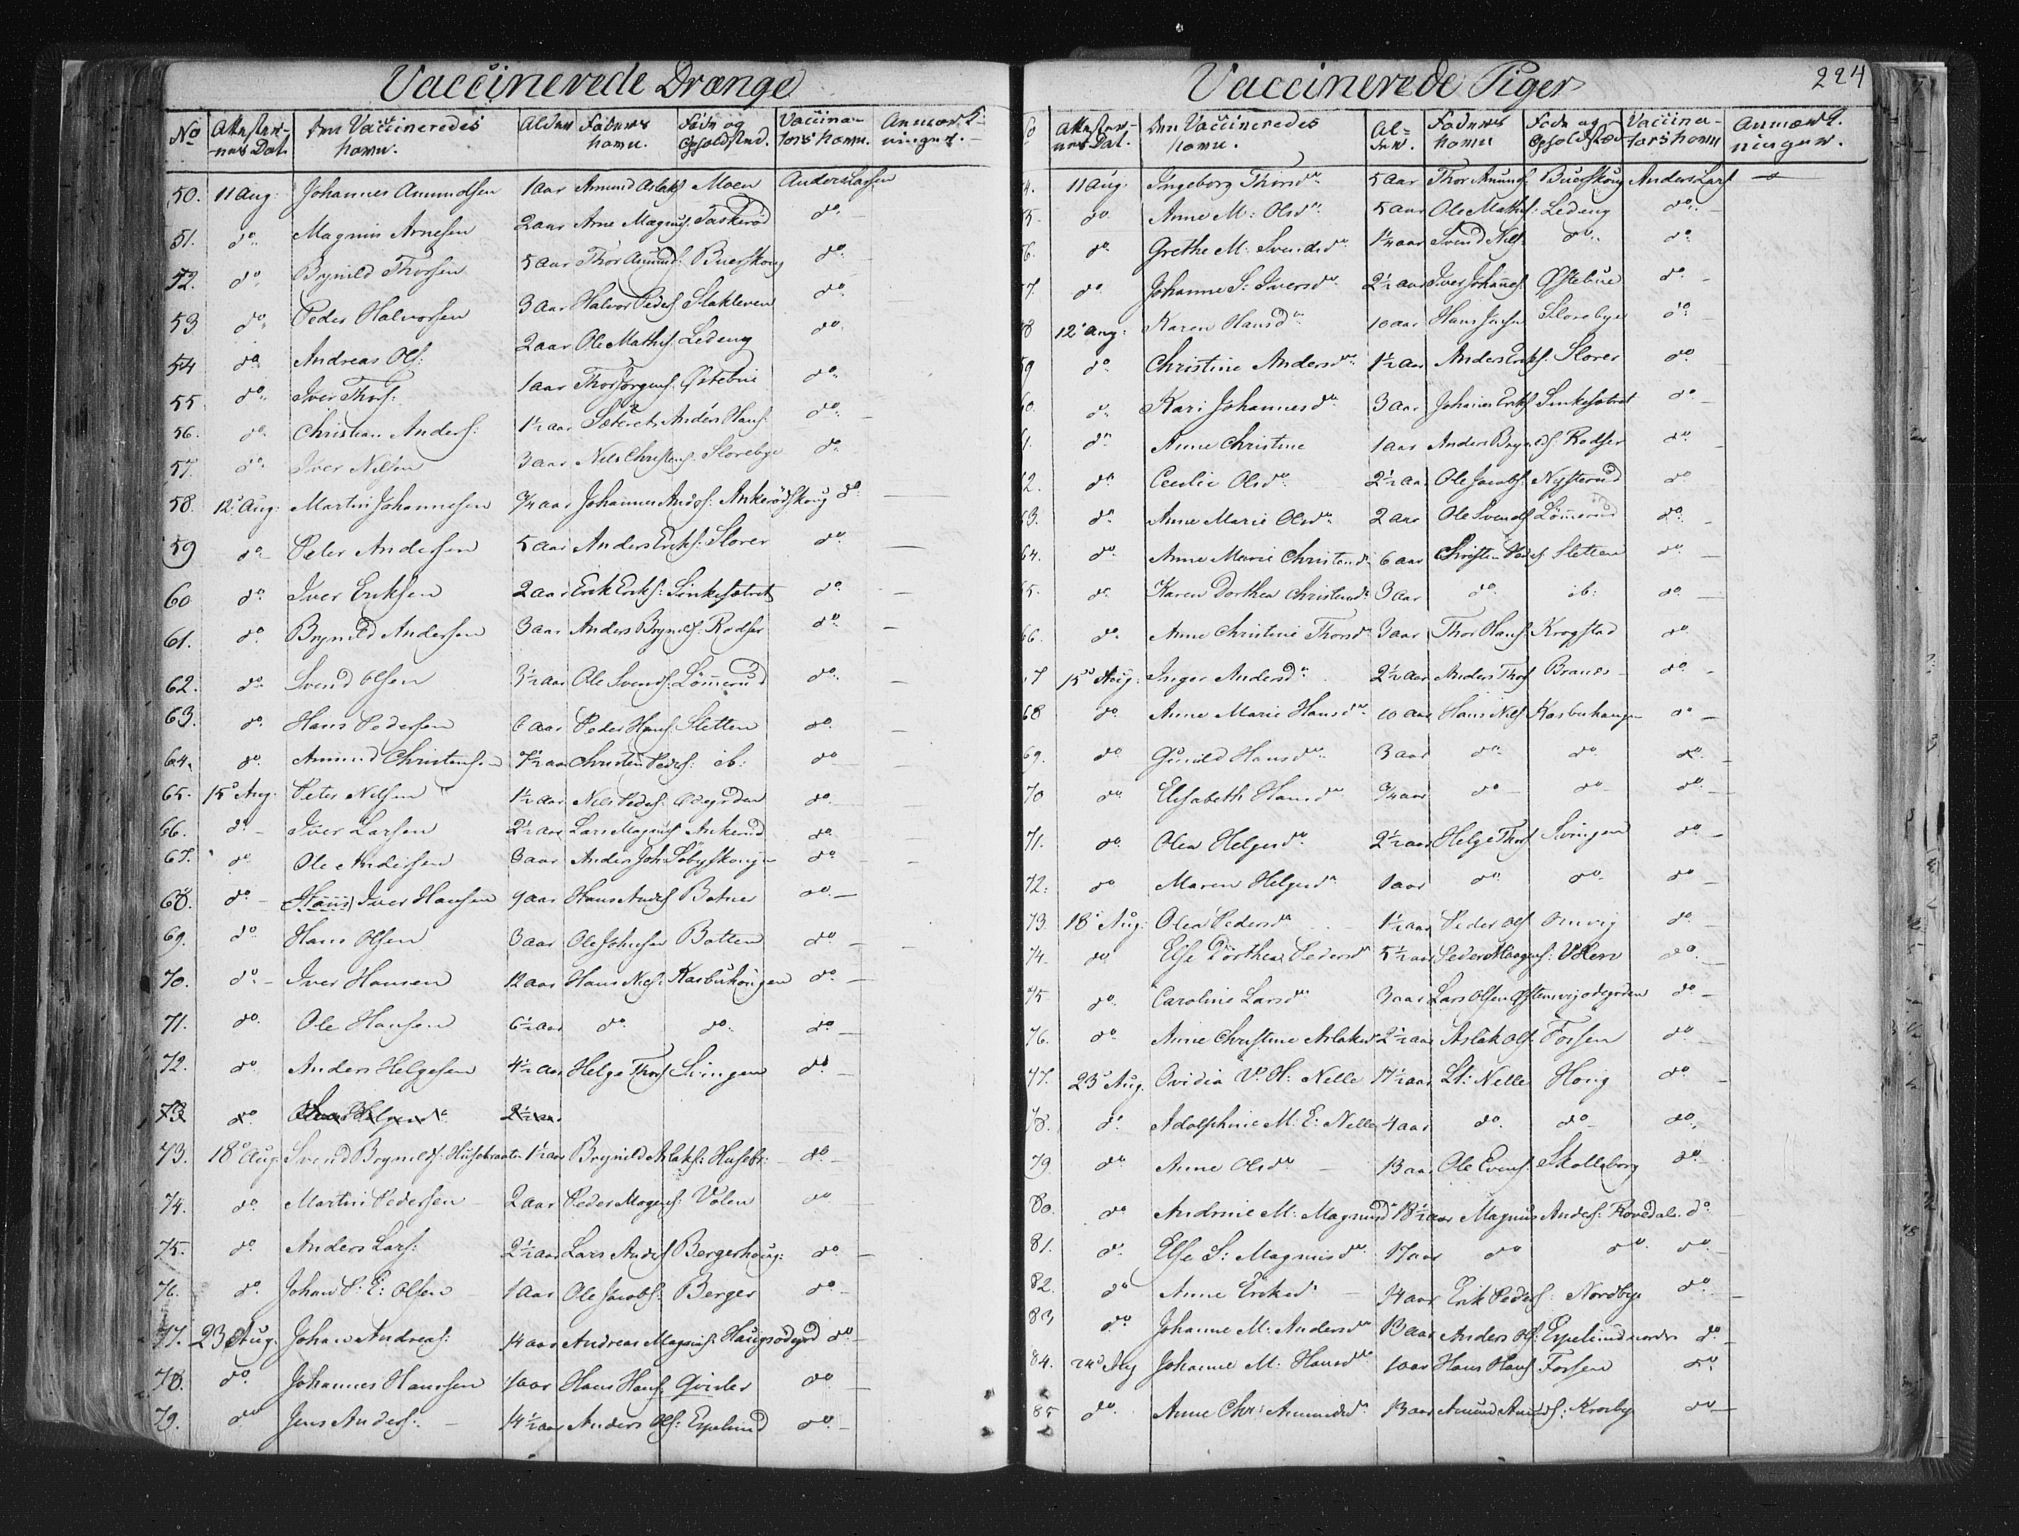 Vaccinerede Drænge
No Attester-nes Dat. Den Vaccineredes Navn. Alder Faderens Navn. Føde og Opholdsted. Vaccina-tors Navn. Anmærk-ninger.
50. 11 Aug. Johannes Amundsen 1 aar Amund Aslaks. Moen Anders Larsen
51. do Magnus Arnesen 2 aar Arne Magnus. Taskerød do
52. do Brynild Thorsen 5 aar Thor Amunds. Buerskoug do
53 do Peder Halvorsen 3 aar Halvor Peders. Slakleven do
54 do Andreas Ols: 2 aar Ole Mathis. Ledeng do
55 do Iver Thors: 1 aar Thor Jørgens. Østebøe do
56. do Christian Anders: 1½ aar Sæteret Anders Hans: do
57. do Iver Nilsen 3 aar Nils Christens. Slorebye do
58. 12 Aug: Martin Johannesen ¾ aar Johannes Anders. Ankerødskoug do
59 do Peter Andersen 5 aar Anders Eriks: Slorer do
60 do Iver Eriksen 2 aar Erik Eriks: Sinkesætret do
61. do Brynild Andersen 3 aar Anders Brynilds. Rodser do
62. do Svend Olsen 3½ aar Ole Svends. Lømmerud do
63. do Hans Pedersen 6 aar Peder Hans. Sletten do
64. do Amund Christens.n 7½ aar Christen Peders: ib: do
65. 15 Aug. Peter Nilsen 1½ aar Nils Peders. Ødegrden do
66. do Iver Larsen 2½ aar Lars Magnus. Ankerud do
67. do Ole Andersen 3 aar Anders Joh. Søbyskougen do
68. do Hans Iver Hansen 9 aar Hans Anders. Botner do
69. do Hans Olsen 3 aar Ole Johnsen Botten do
70. do Iver Hansen 12 aar Hans Nils: Kasbuhougen do
71. do Ole Hansen 6½ aar do do do
72. do Anders Helgesen 4½ aar Helge Thors. Svingen do
73 do Olea Helgesd 2½ aar
73. 18 Aug. Svend Brynilds. Husebraaten 1½ aar Brynild Aslaks: Husebr: do
74. do Martin Pedersen 2 aar Peder Magnus: Volen do
75. do Anders Lars: 2½ aar Lars Anders. Bergerhoug: do
76. do Johan P. E: Olsen 1 aar Ole Jacobs: Berger do
77. 23 Aug. Johan Andreas: 14 aar Andreas Magnus. Haugsødegrd do
78. do Johannes Hanssen 1 aar Hans Hans. Gvider do
79. do Jens Anders: 14½ aar Anders Ols: Espelund do
Vaccinerede Piger 224
No Attester-nes Dat. Den Vaccineredes Navn. Al-der. Faderens Navn Føde og Opholdsted Vaccina-tors Navn Anmærk-ninger.
4. 11 Aug. Ingeborg Thorsdr 5 aar Thor Amunds. Buerskoug Anders Lars.
5. do Anne M: Olsdr 5 aar Ole Mathis: Ledeng do
6. do Grethe M. Svendsdr 1¼ aar Svend Nils. do do
7. do Johanne S. Iversdr 2½ aar Iver Johannes. Østebøe do
8 12 Aug: Karen Hansdr 10 aar Hans Jensen Slorebye do
59 do Christine Andersdr 1½ aar Anders Eriks. Slorer do
60. do Kari Johannesdr 3 aar Johannes Eriks. Sinkesætret do
61. do Anne Christine 1 aar Anders Brynilds. Rodser do
62. do Cecilie Olsdr 2½ aar Ole Jacobs. Nysterud do
63. do Anne Marie Olsdr 2 aar Ole Svends. Lømmerud do
64. do Anne Marie Christensd. 6 aar Christen Peders. Sletten do
65. do Karen Dorthea Christensd. 3 aar do ib: do
66. do Anne Christine Thorsd. 3 aar Thor Hans. Krogstad do
67 15 Aug: Inger Andersdr 2½ aar Anders Thors. Branes do
68 do Anne Marie Hansdr 10 aar Hans Nils. Kasbuhaugen do
69. do Gunild Hansdr 3 aar do do do
70 do Elisabeth Hansdr ¾ aar do do do
71. do Olea Helgesdr 2½ aar Helge Thors. Svingen do
72. do Maren Helgesdr 1 aar do do do
73. 18 Aug: Olea Pedersdr 1½ aar Peder Ols. Omvig do
74. do Else Dorthea Pedersdr 5½ aar Peder Magnus: Volen do
75 do Caroline Larsdr 3 aar Lars Olsen Østensvigødegrden do
76. do Anne Christine Aslaksdr 2½ aar Aslak Ols. Fossen do
77. 23 Aug. Ovidia V. H: Nelle 17½ aar Lt: Nelle Honig do
78. do Adolphine M: E: Nelle 4 aar do do do
79 do Anne Olsdr 13 aar Ole Evens: Skolleborg do
80. do Andrine M: Magnusdr 18½ aar Magnus Anders: Rovedal. do
81. do Else S: Magnusdr 17 aar do do do
82. do Anne Eriksdr 14 aar Erik Peders. Nordbye do
83, do Johanne M: Andersdr 13 aar Anders Ols: Espelund nordre do
84. 24 Aug Johanne M. Hansdr 10 aar Hans Hans. Fossen do
85 do Anne Chr: Amundsdr 13 aar Amund Amunds: Krosbye do